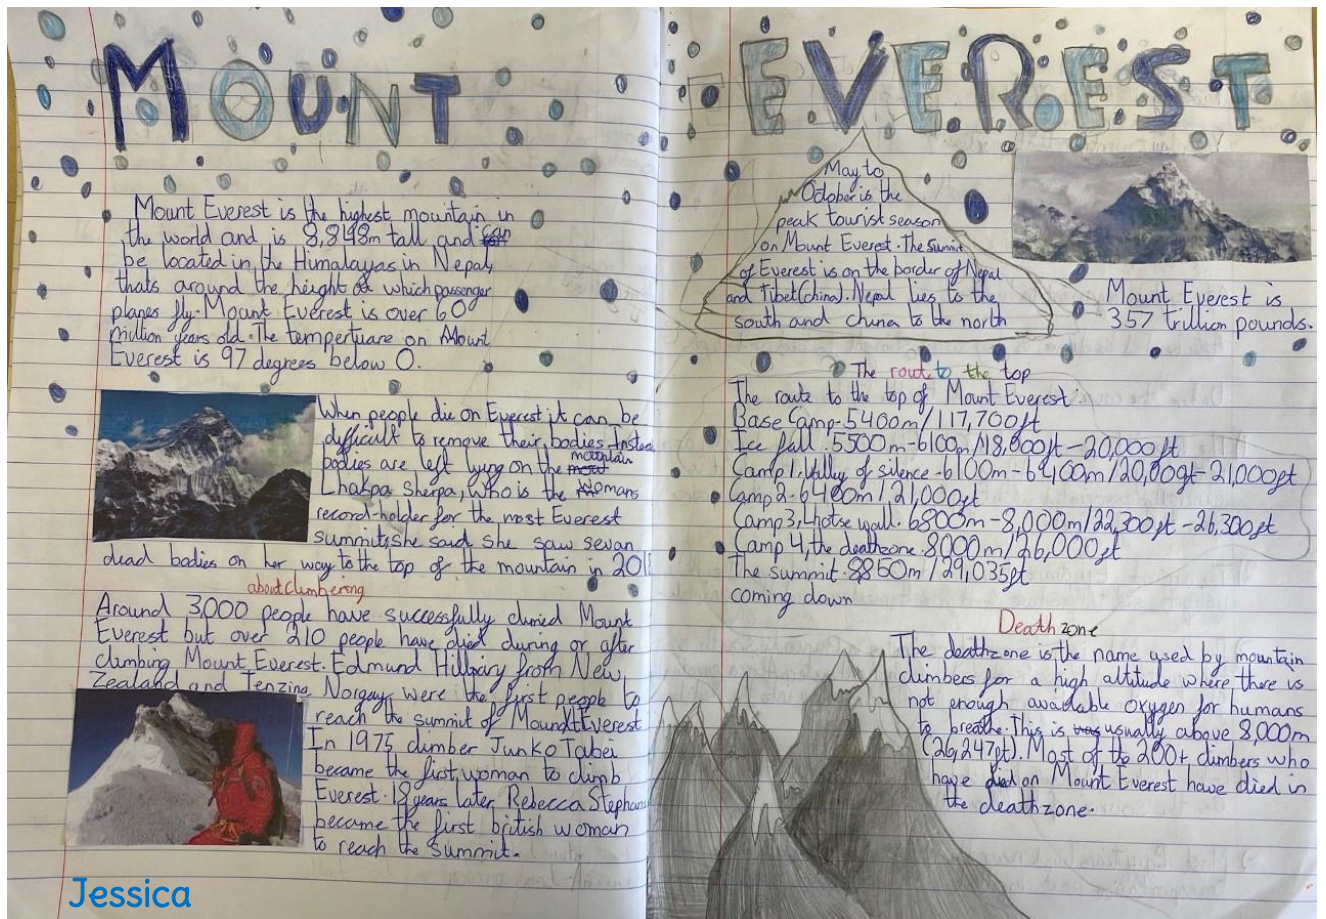 MOUNT EVEREST
Mount Everest is the highest mountain in
the world and is 8,848m tall and can
be located in the Himalayas in Nepal,
thats around the height at which passenger
planes fly. Mount Everest is over 60
million years old. The tempertuare on Mount
Everest is 97 degrees below 0.
When people die on Everest it can be
difficult to remove their bodies. Instead
bodies are left lying on the mountain
Lhakpa Sherpa, who is the womans
record-holder for the most Everest
summits, she said she saw sevan
dead bodies on her way to the top of the mountain in
about climbering
Around 3,000 people have successfully climed Mount
Everest but over 210 people have died during or after
climbing Mount Everest. Edmund Hillary from New
Zealand and Tenzing Norgay were the first people to
reach the summit of Mount Everest
In 1975 climber Junko Tabei
became the first woman to climb
Everest. 18 years later, Rebecca Stephans
became the first british woman
to reach the summit.
Jessica
May to
October is the
peak tourist season
on Mount Everest. The summit
of Everest is on the border of Nepal
and Tibet (china). Nepal lies to the
south and china to the north
Mount Everest is
357 trillion pounds.
The route to the top
The route to the top of Mount Everest:
Base Camp-5400m/117,700ft
Ice fall. 5500m-6100m/18,000ft-20,000ft
Camp 1, Valley of silence-6100m-6400m/20,000ft-21,000ft
Camp 2-6400m/21,000ft
Camp 3, Lhotse wall. 6800m-8,000m/22,300ft-26,300ft
Camp 4, the deathzone. 8000m/26,000ft
The summit. 8850m/29,035ft
coming down
Death zone
The deathzone is the name used by mountain
climbers for a high altitude where there is
not enough available oxygen for humans
to breathe. This is usually above 8,000m
(26,247ft). Most of the 200+ climbers who
have died on Mount Everest have died in
the deathzone.